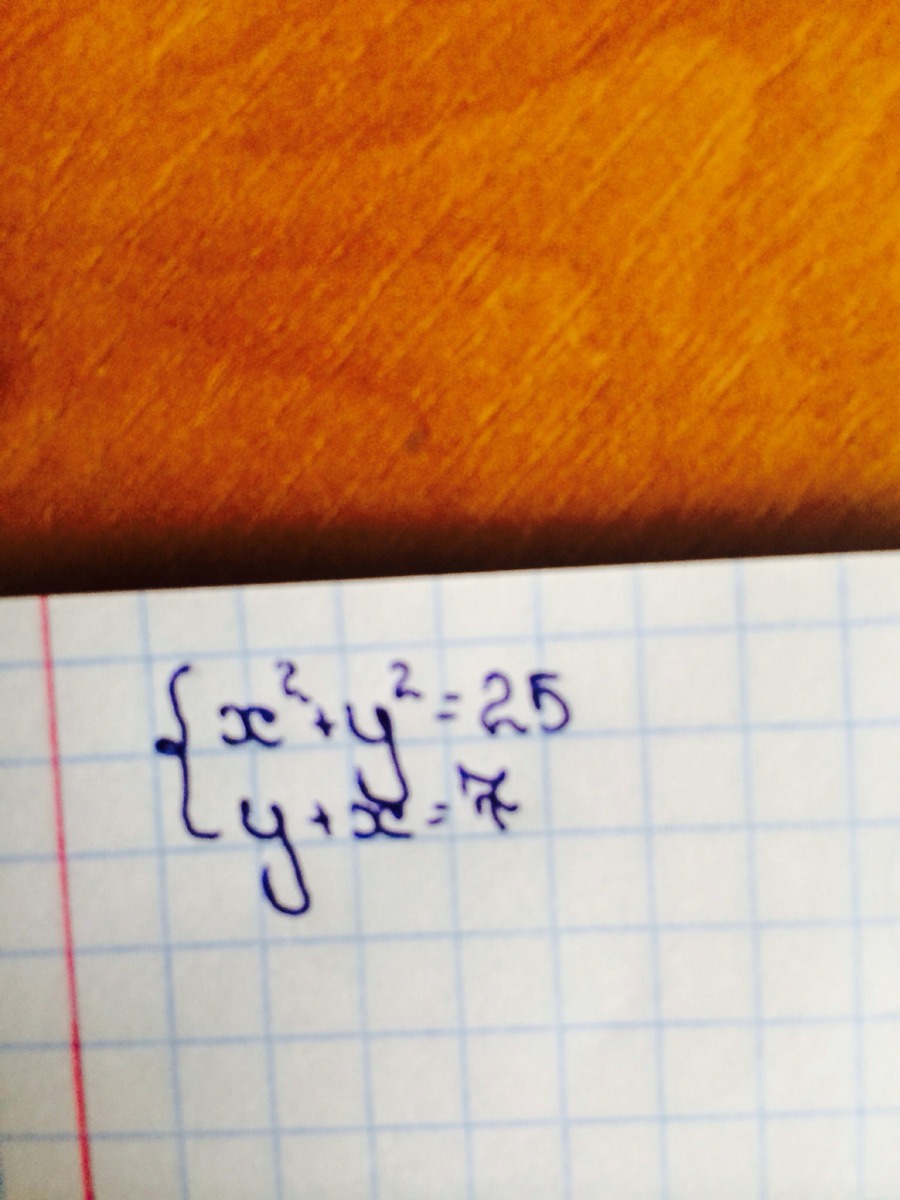 { x² + y² = 25
y + x = 7